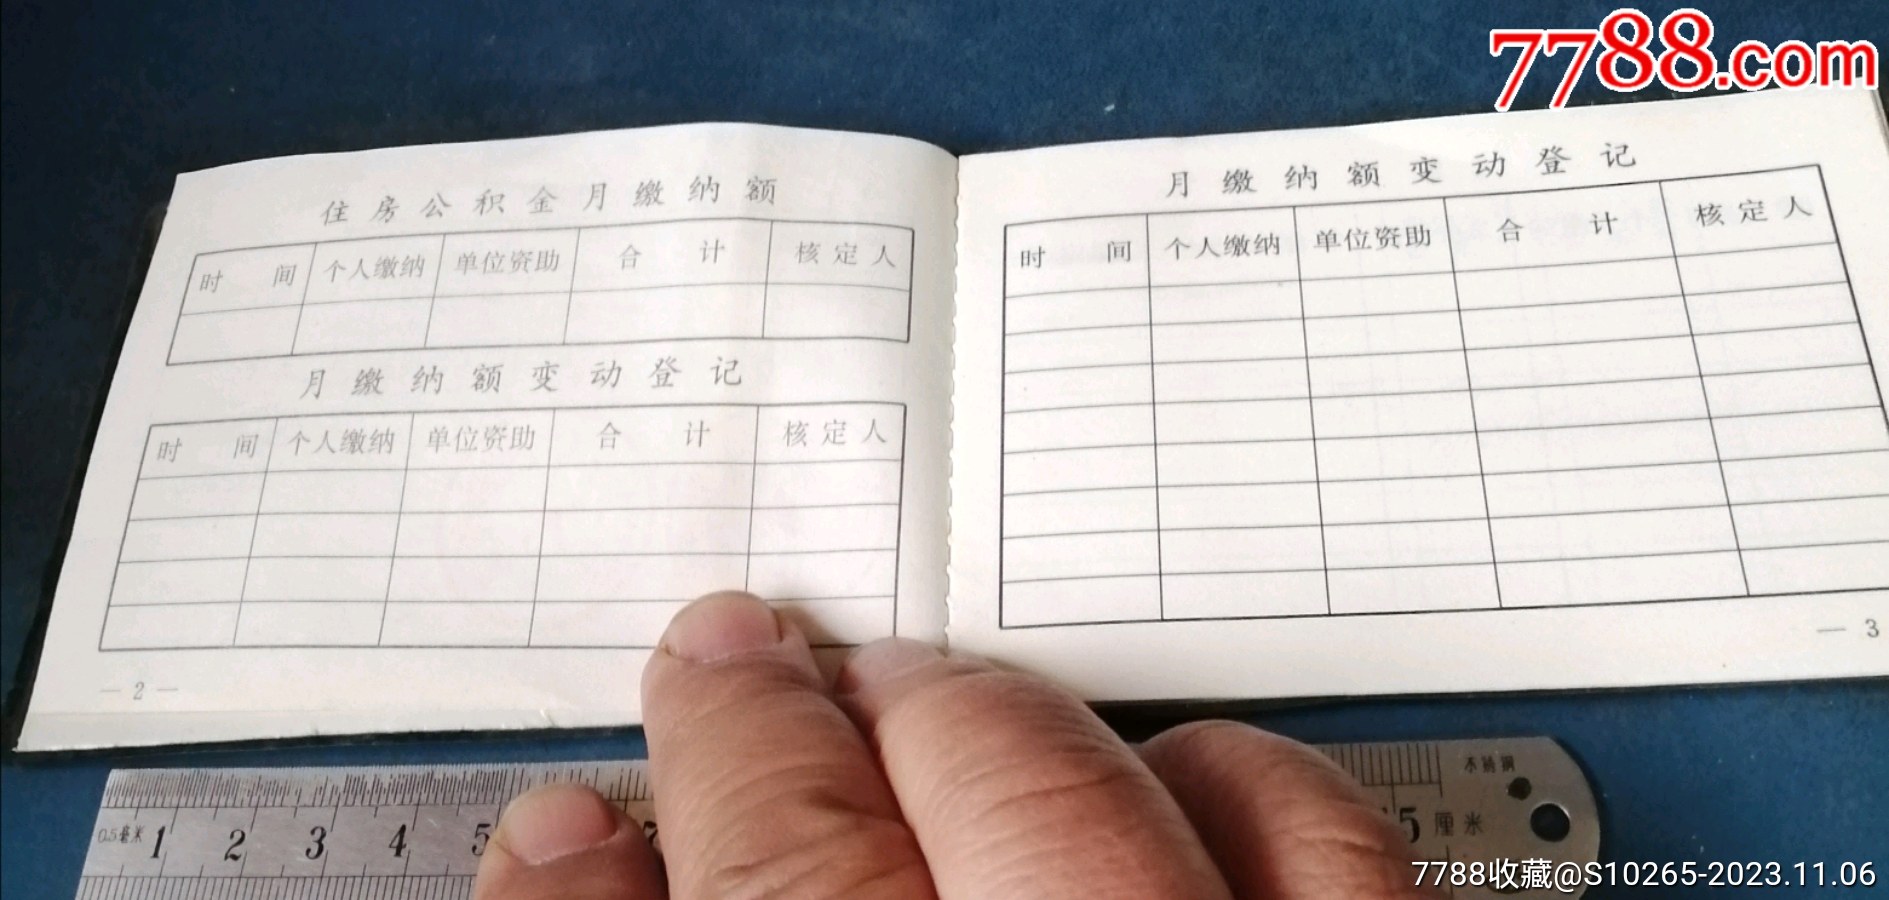 7788.com
住房公积金月缴纳额
时间 个人缴纳 单位资助 合计 核定人
月缴纳额变动登记
时间 个人缴纳 单位资助 合计 核定人
— 2 —
月缴纳额变动登记
时间 个人缴纳 单位资助 合计 核定人
— 3
0.5毫米 1 2 3 4 5 7 5 厘米
不锈钢
7788收藏@S10265-2023.11.06